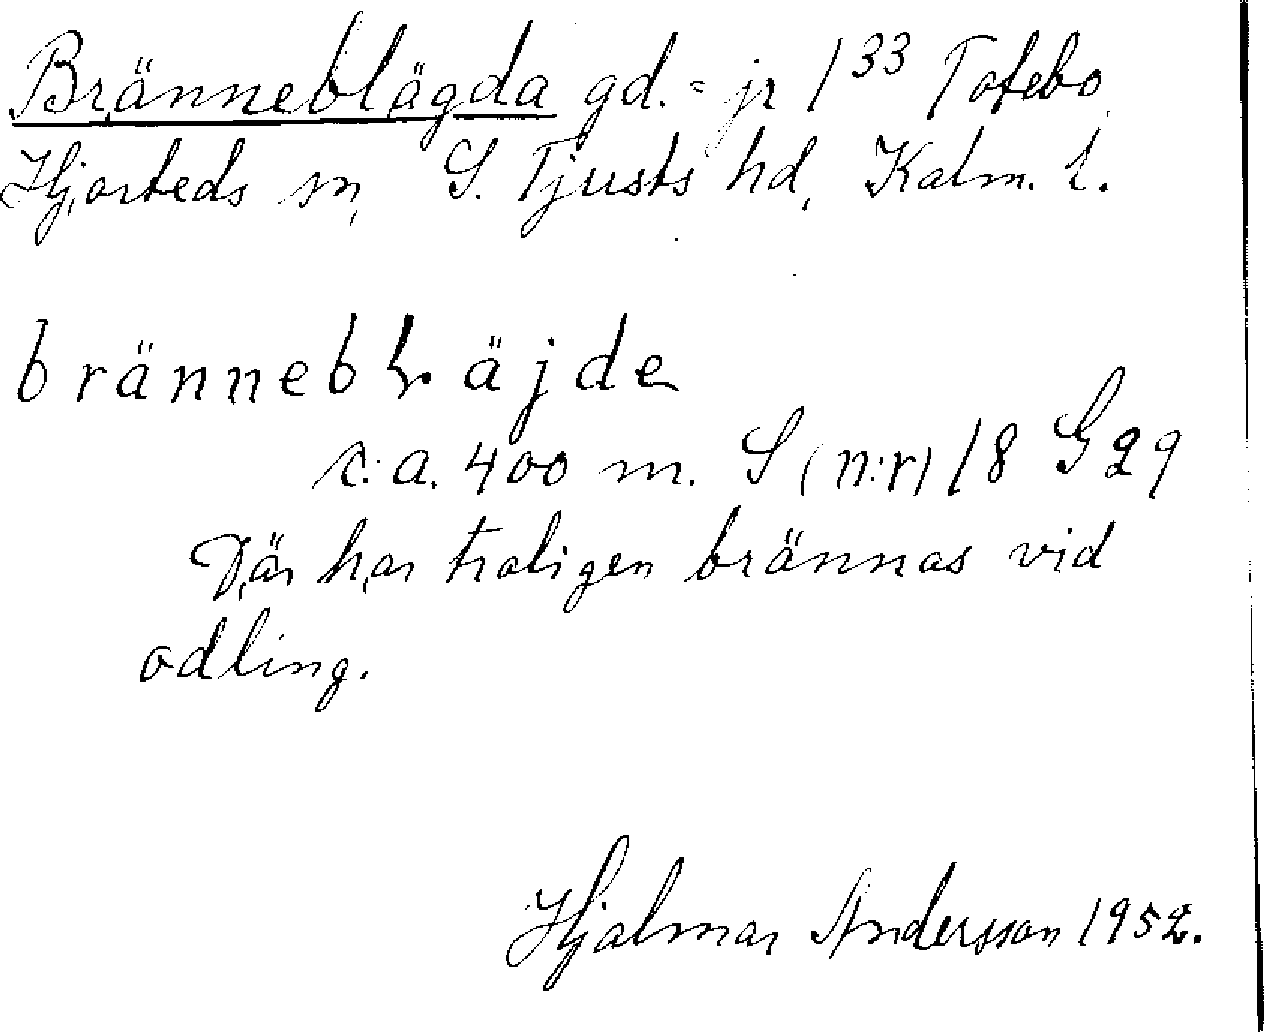 Bränneblägda gd.= jr 1³³ Totebo
Hjorteds sn, S. Tjusts hd, Kalm. l.
brännebläjde
c:a. 400 m. S (n:r) 18 G29
Där har troligen brännas vid
odling.
Hjalmar Andersson 1952.